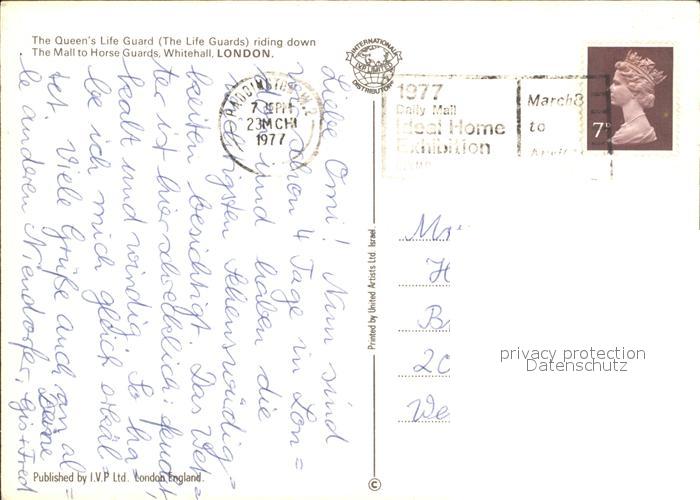 The Queen's Life Guard (The Life Guards) riding down
The Mall to Horse Guards, Whitehall, LONDON.
INTERNATIONAL
DISTRIBUTORS
PADDINGTON W.2
23 MCH
1977
1977
Daily Mail
Ideal Home
Exhibition
March 8
to
7P
Liebe Omi! Nun sind
wir schon 4 Tage in Lon=
don und haben die
wichtigsten Sehenswürdig=
keiten besichtigt. Das Wet=
ter ist hier schrecklich: feucht,
kalt und windig. So ha=
be ich mich gleich erkäl=
tet. Viele Grüße auch an al=
le anderen Niendorfer,
Deine
Gis + Fred
Printed by United Artists Ltd. Israel.
H
B
We
privacy protection
Datenschutz
Published by I.V.P Ltd. London England.
©